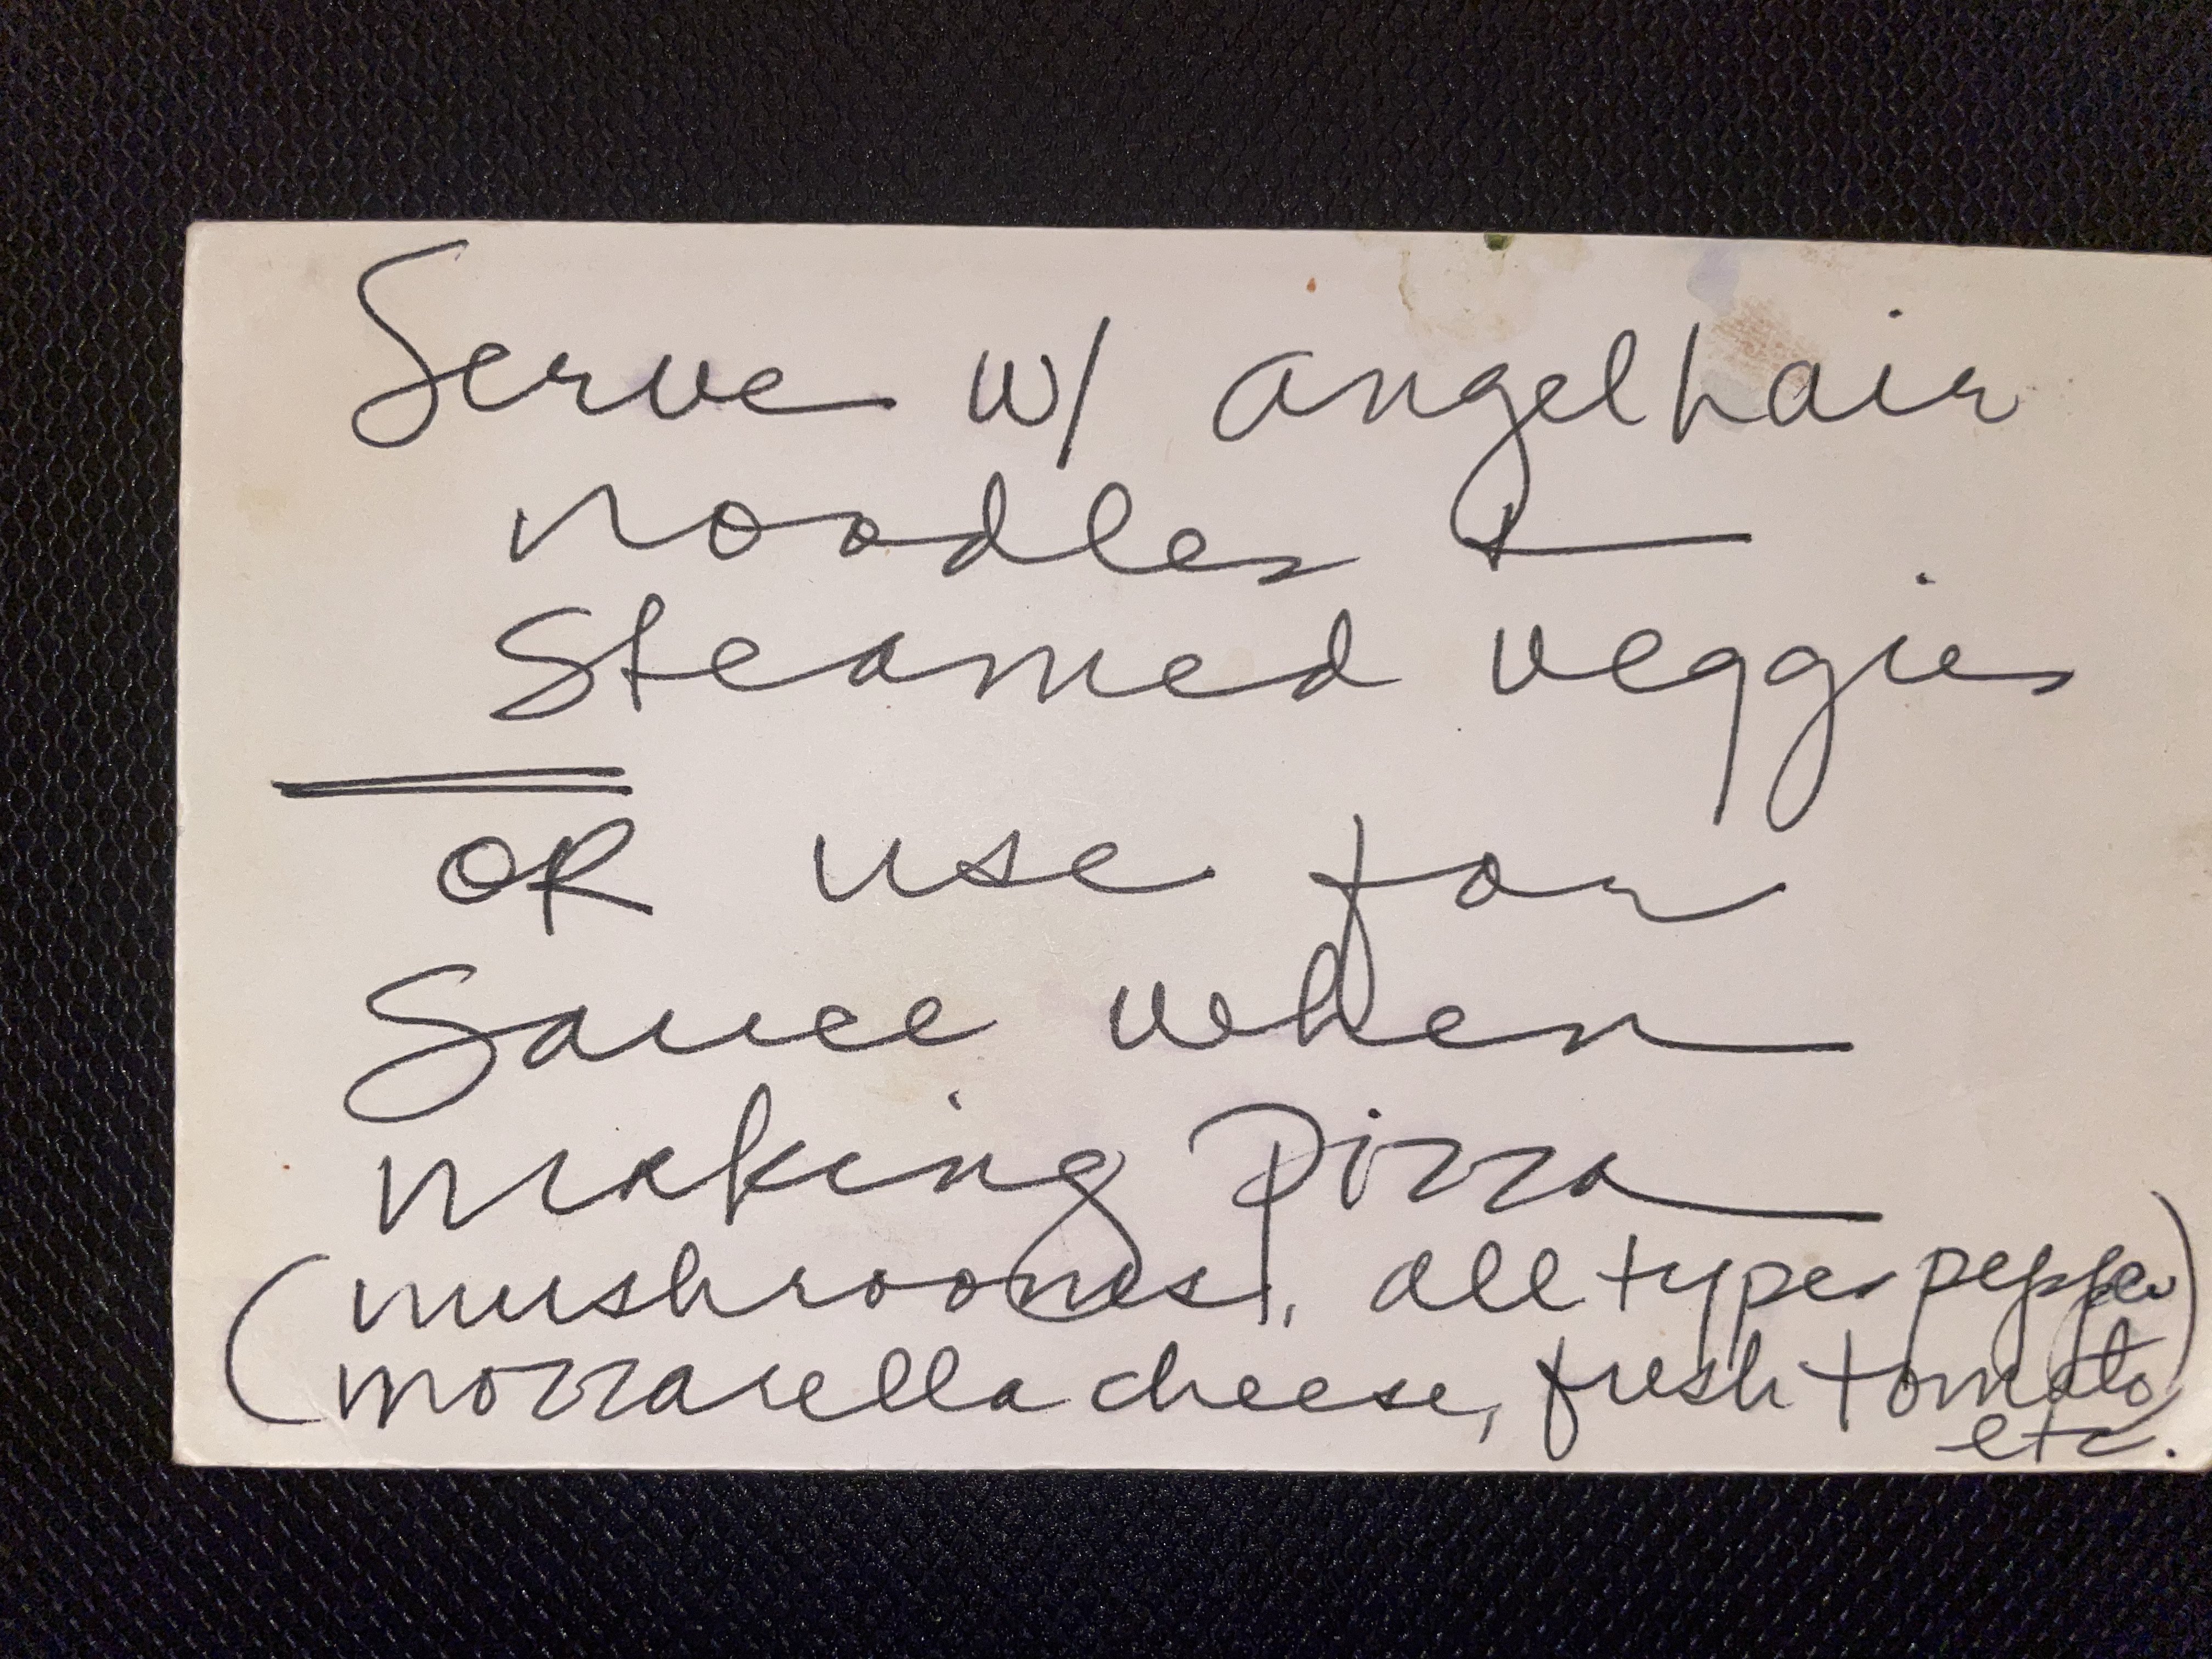 Serve w/ angel hair
noodles &
Steamed veggies
OR use for
Sauce when
making Pizza
(mushrooms, all types pepper
mozzarella cheese, fresh tomato)
etc.